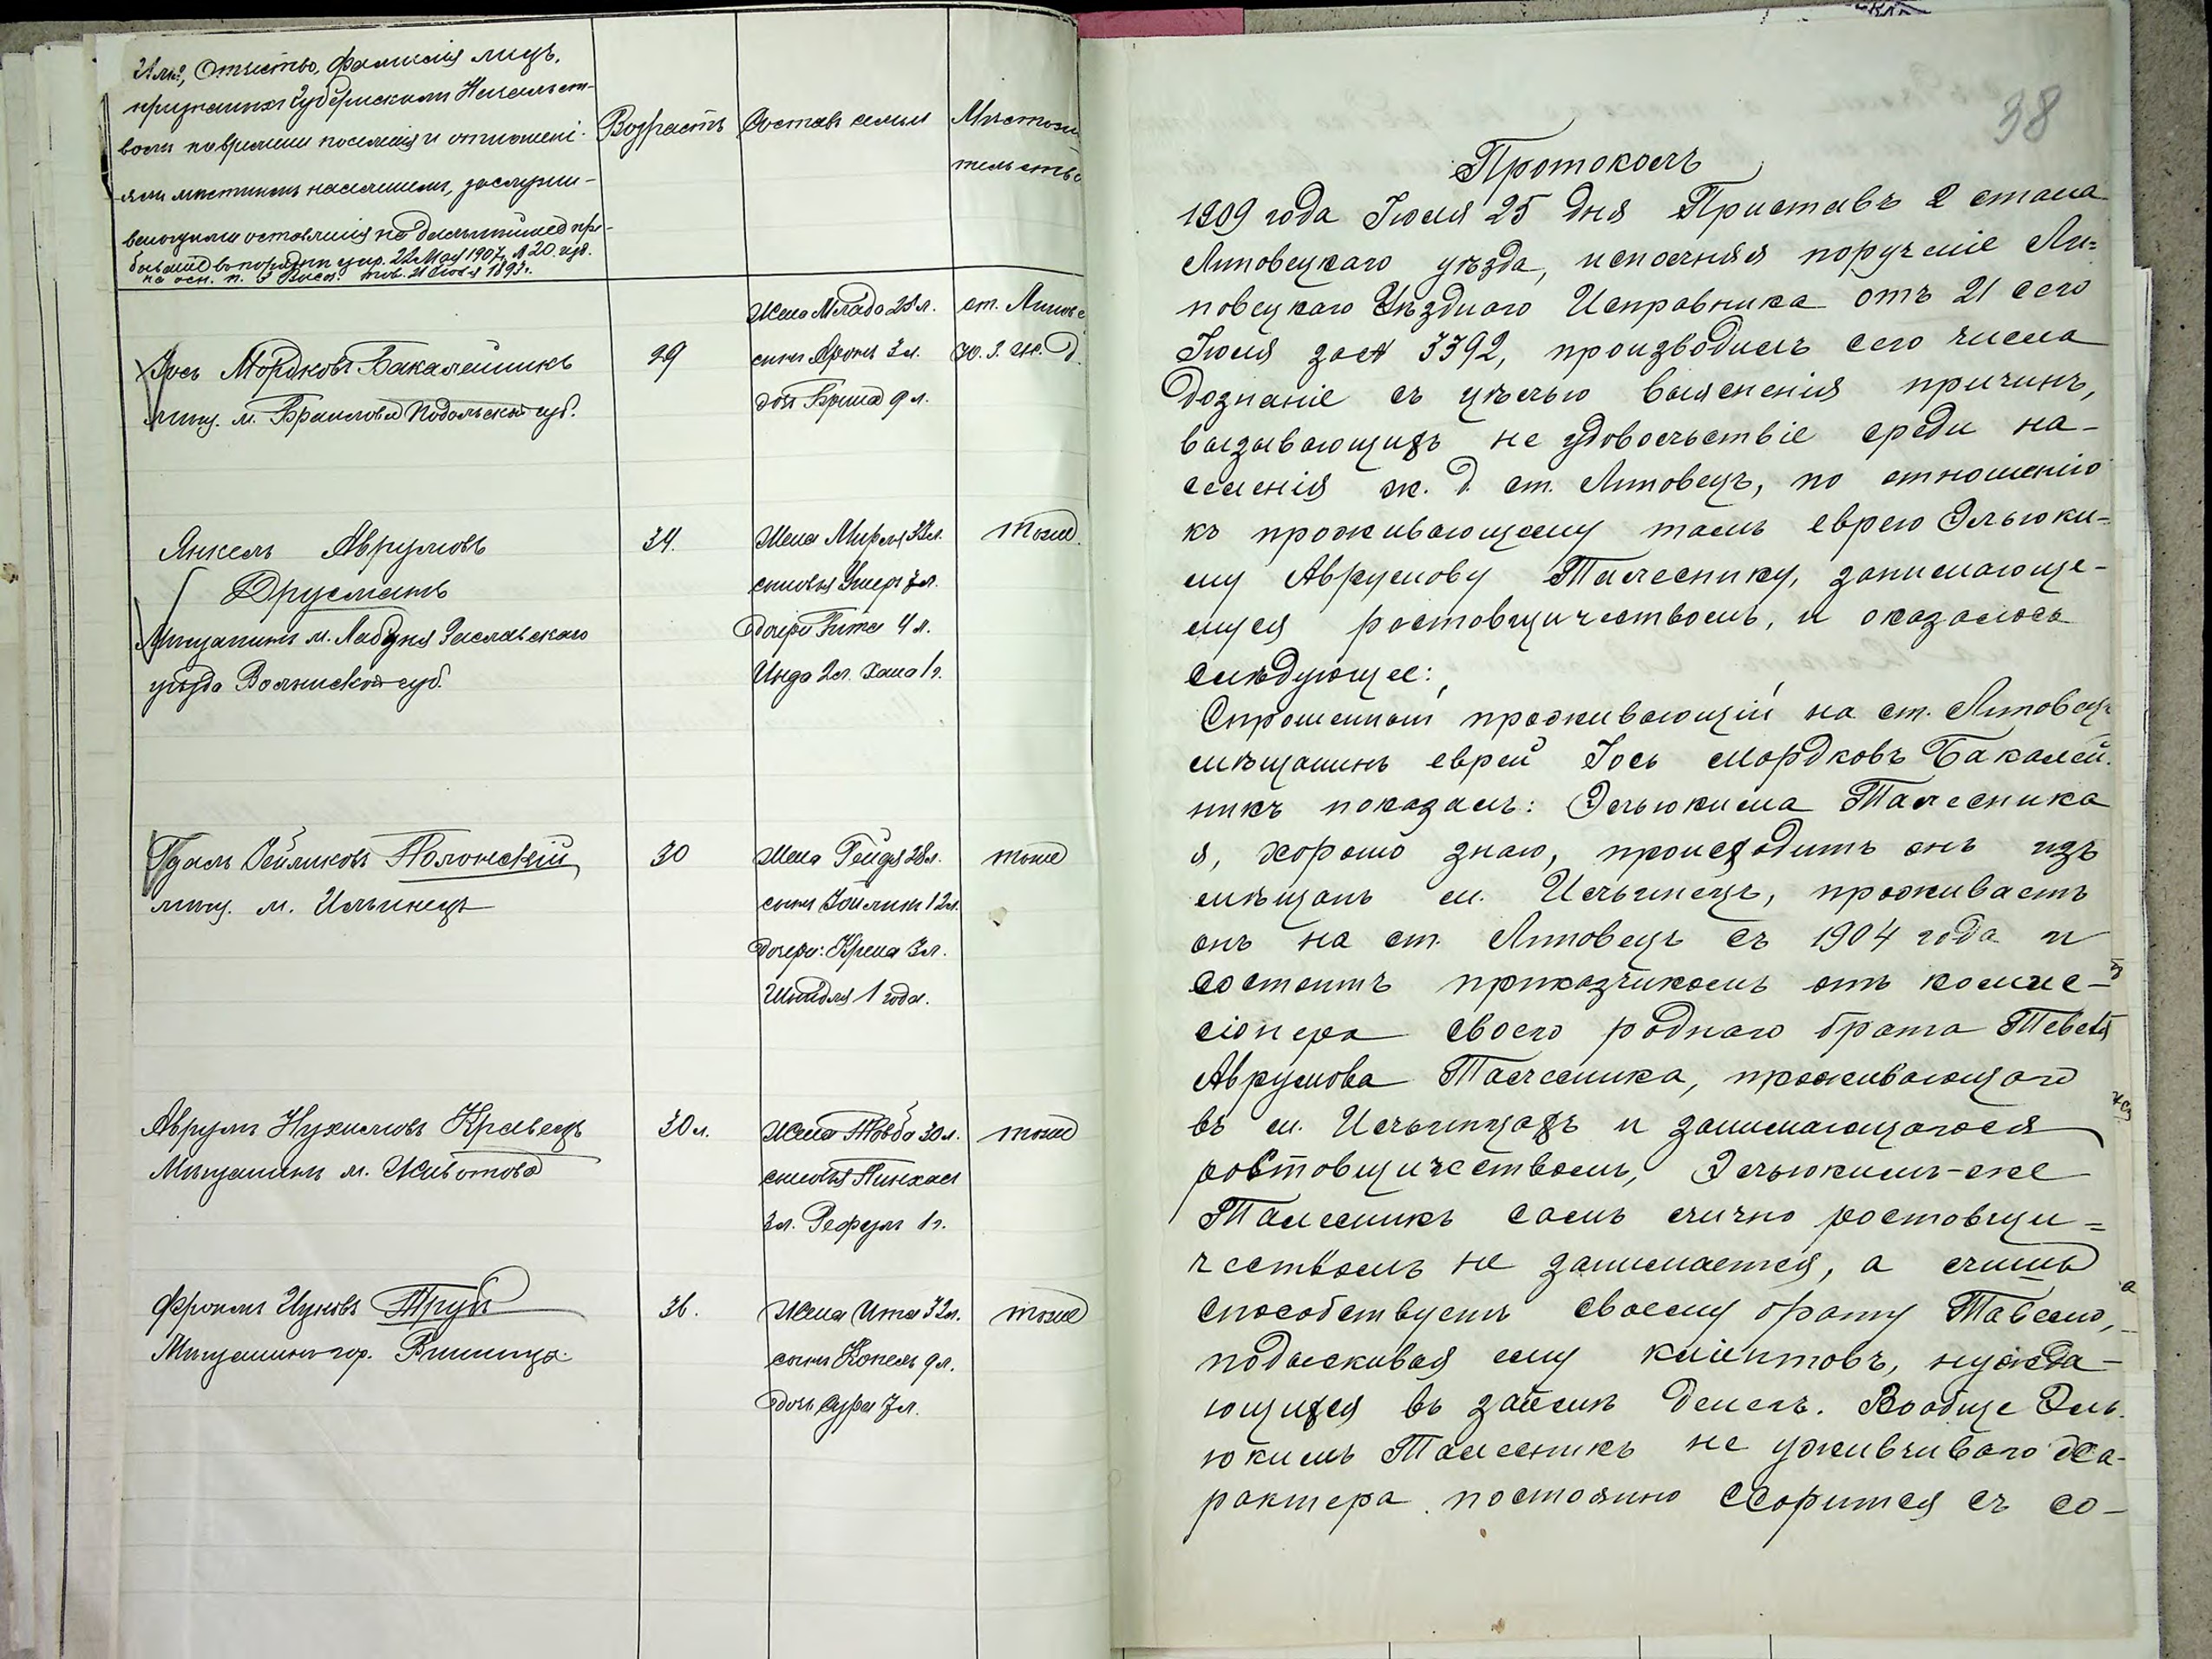 Имя, Отчество, фамилія лицъ,
признанных Губернскимъ Начальст-
вомъ по времени поселенія и отношені-
ямъ мѣстнымъ населеніем, заслужи-
вающими оставленія на дальнѣйшее пре-
бываніе въ порядкѣ цир. 22 Мая 1907 г. № 20 изд.
на осн. п. 3 Высоч. пов. 21 1893 г.
Возрастъ
Составъ семьи
Мѣстожи
тельство
Іось Мордковъ Бакалейникъ
мѣщ. м. Браилова Подольской губ.
29
Жена Млада 28 л.
сынъ Аронъ 3 л.
дочь Брима 9 л.
ст. Липове
Ю. З. ж. д.
Янкель Аврумовъ
Друсманъ
Мѣщанинъ м. Лабуня Заславскаго
уѣзда Волынской губ.
34.
Жена Мирля 32 л.
сыновья Ушеръ 7 л.
Дочери Гитя 4 л.
Инда 2 л. Хана 1 г.
тоже
Гдаль Вейликовъ Полонскій
мѣщ. м. Ильинецъ
30
Жена Гейдя 28 л.
сынъ Зойликъ 12 л.
Дочери: Крейна 3 л.
Шейндля 1 года.
тоже
Аврумъ Нухимовъ Кравецъ
Мѣщанинъ м. Животова
30 л.
Жена Товба 30 л.
сыновья Пинхасъ
3 л. Рефулъ 1 г.
тоже
Фроимъ Ицковъ Трубъ
Мѣщанинъ гор. Винница
36.
Жена Ита 32 л.
сынъ Копель 9 л.
дочь Сура 7 л.
тоже
38
Протоколъ
1909 года Іюля 25 дня Приставъ 2 стана
Липовецкаго уѣзда, исполняя порученіе Ли=
повецкаго Уѣзднаго Исправника отъ 21 сего
Іюля за № 3392, производилъ сего числа
дознаніе съ цѣлью выясненія причинъ,
вызывающихъ не удовольствіе среди на-
селенія ж. д. ст. Липовецъ, по отношенію
къ проживающему тамъ еврею Эльюки=
му Аврумову Талеснику, занимающе-
муся ростовщичествомъ, и оказалось
слѣдующее:
Спрошенный проживающій на ст. Липовецъ
мѣщанинъ еврей Іось Мордковъ Бакалей.
никъ показалъ: Эльюкима Талесника
я, хорошо знаю, происходитъ онъ изъ
мѣщанъ м. Ильинецъ, проживаетъ
онъ на ст. Липовецъ съ 1904 года и
состоитъ приказчикомъ отъ комис-
сіонера своего роднаго брата Тевеля
Аврумова Талесника, проживающаго
въ м. Ильинцахъ и занимающагося
ростовщичествомъ, Эльюкимъ-же
Талесникъ самъ лично ростовщи=
чествомъ не занимается, а лишь
способствуетъ своему брату Тавелю,
подыскивая ему кліентовъ, нужда-
ющихся въ займѣ денегъ. Вообще Эль.
юкимъ Талесникъ не уживчиваго ха-
рактера постоянно ссорится съ со-